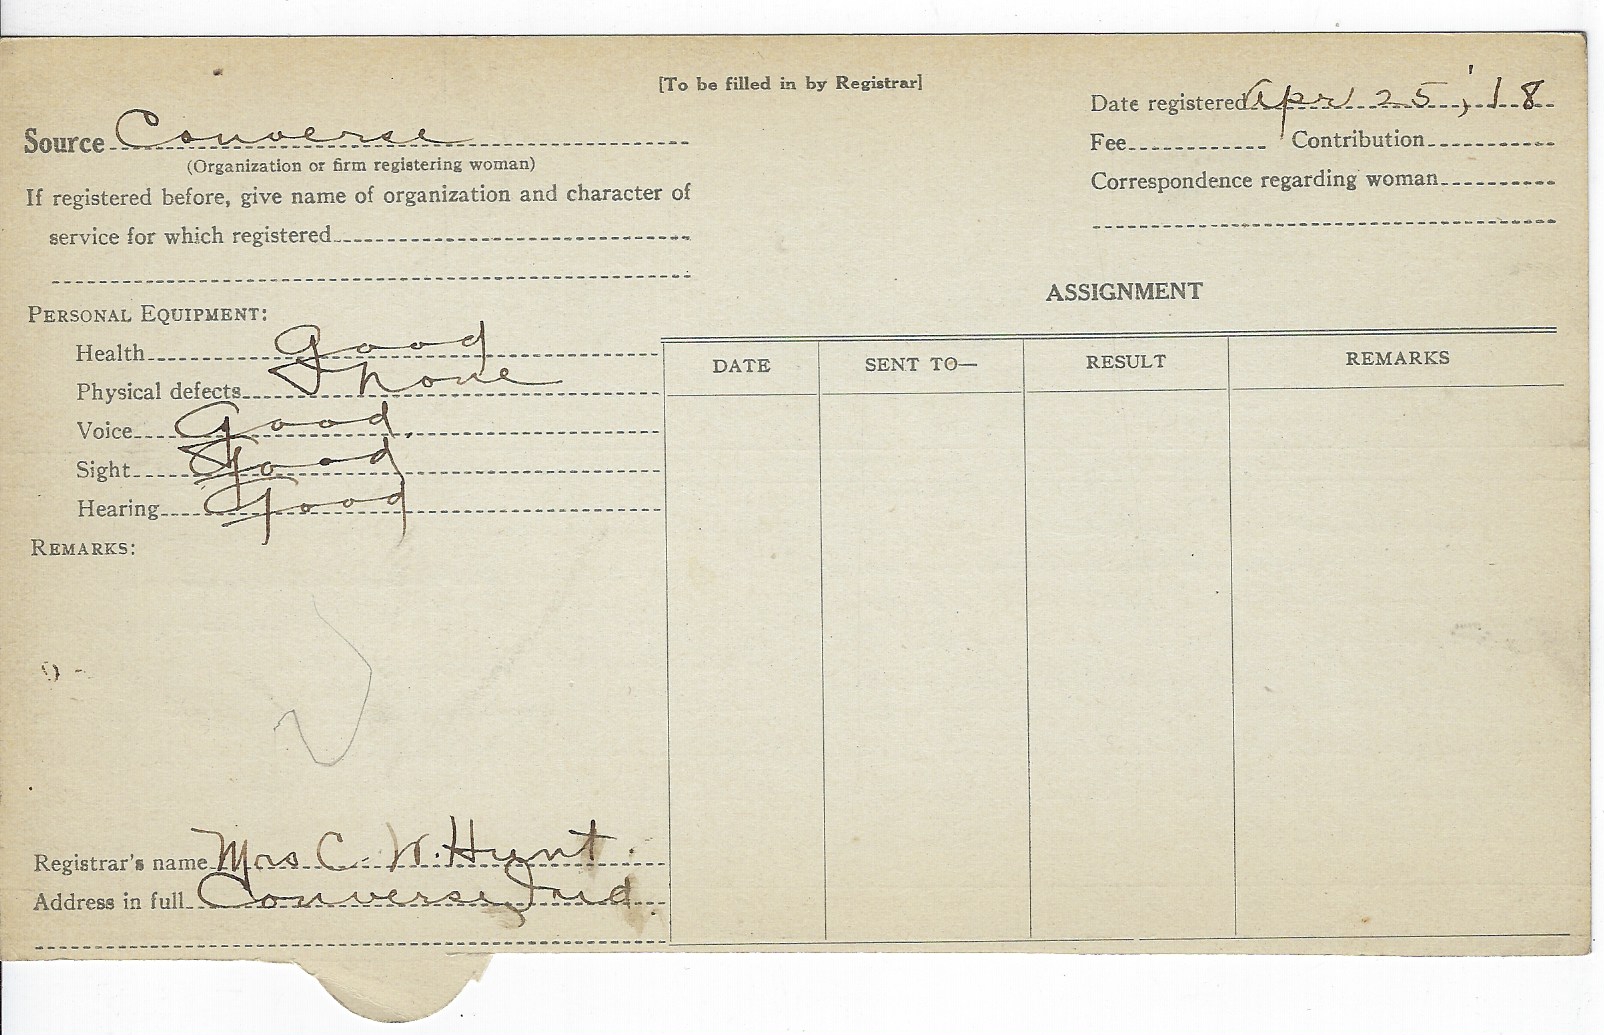 [To be filled in by Registrar]
Date registered Apr 25, '18
Source Converse
Fee Contribution
(Organization or firm registering woman)
Correspondence regarding woman
If registered before, give name of organization and character of
service for which registered
ASSIGNMENT
PERSONAL EQUIPMENT:
Health Good
Physical defects none
Voice Good
Sight Good
Hearing Good
DATE SENT TO— RESULT REMARKS
REMARKS:
Registrar's name Mrs C. W. Hunt.
Address in full Converse Ind.